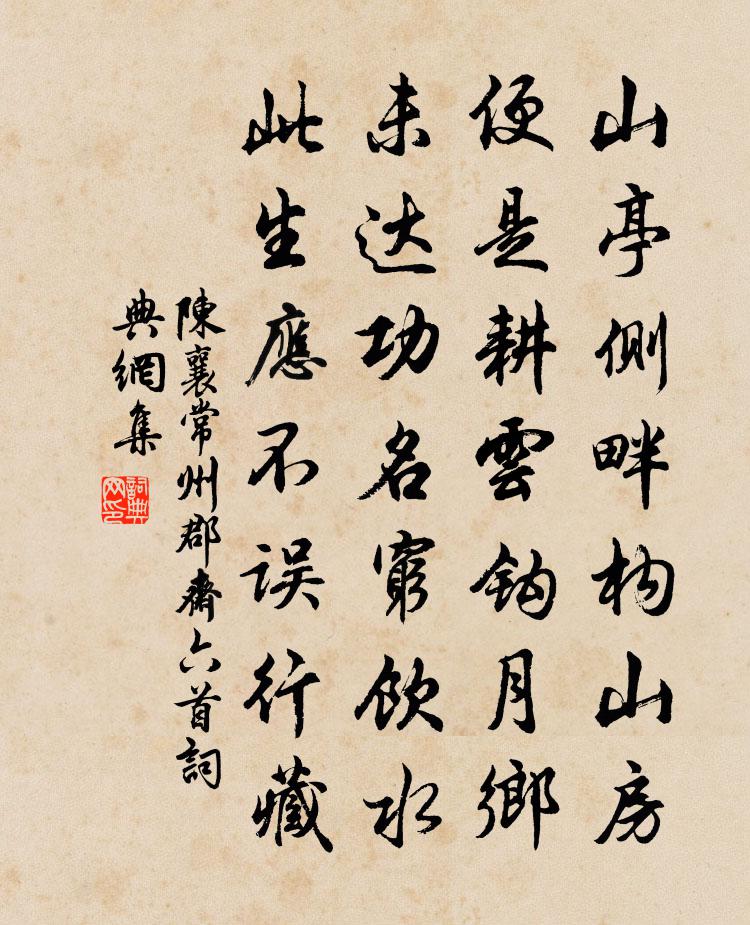 山亭侧畔构山房
便是耕雲钩月鄉
未达功名窮飲水
此生應不误行藏
陳襄常州郡齋六首詞
典網集
詞典
网印